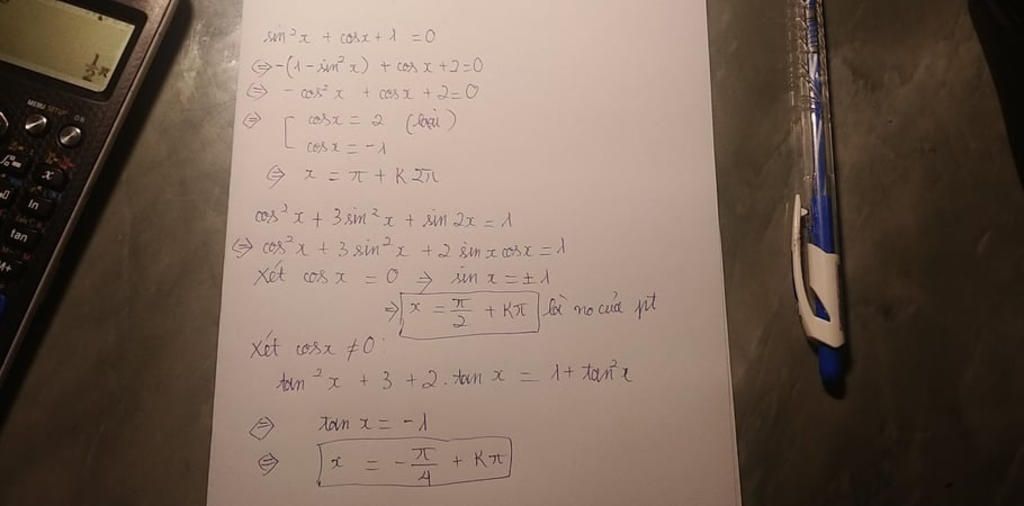 MENU SETUP
ON
x
ln
tan
M+
½π
sin²x + cosx + 1 = 0
⇔ -(1 - sin²x) + cosx + 2 = 0
⇔ - cos²x + cosx + 2 = 0
⇔ [ cosx = 2 (loại)
cosx = -1
⇔ x = π + K2π
cos²x + 3sin²x + sin2x = 1
⇔ cos²x + 3sin²x + 2 sinxcosx = 1
Xét cosx = 0 ⇒ sinx = ±1
⇒ x = π/2 + Kπ là no của pt
Xét cosx ≠ 0:
tan²x + 3 + 2.tanx = 1 + tan²x
⇔ tanx = -1
⇔ x = -π/4 + Kπ